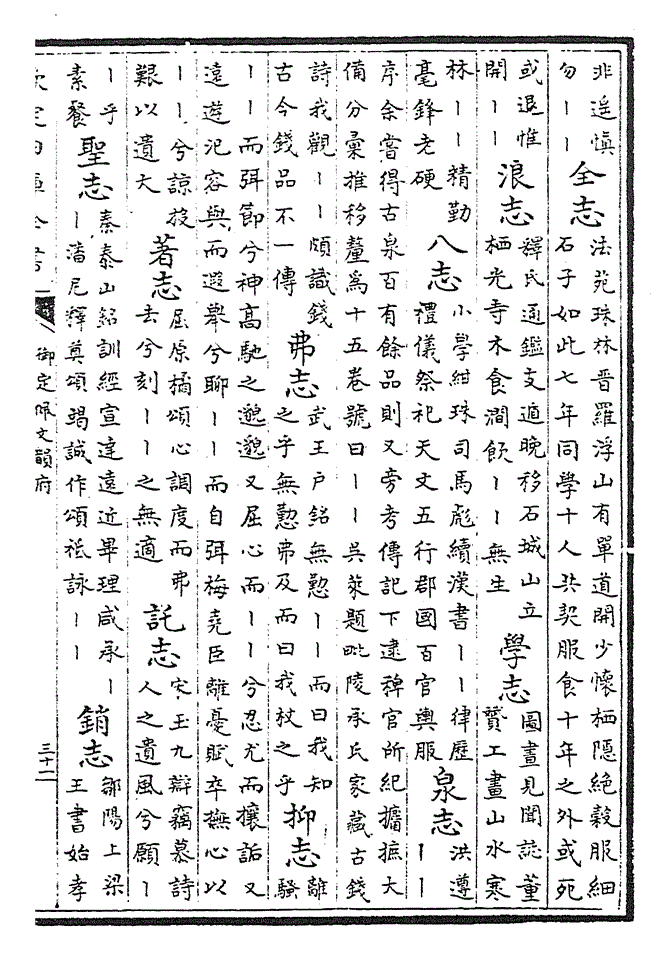 非遥慎
勿丨丨
全志
法苑珠林晋羅浮山有單道開少懷栖隠絶榖服細
石子如此七年同學十人共契服食十年之外或死
或退惟
開丨丨
浪志
釋氏通鑑支遁晚移石城山立
栖光寺木食澗飲丨丨無生
學志
圖畫見聞誌董
贇工畫山水寒
林丨丨精勤
毫鋒老硬
八志
小學紺珠司馬彪續漢書丨丨律歴
禮儀祭祀天文五行郡國百官輿服
泉志
洪遵
丨丨
序余嘗得古泉百有餘品則又旁考傳記下逮稗官所紀攟摭大
備分彚推移釐爲十五卷號曰丨丨吳萊題毗陵承氏家藏古錢
詩我觀丨丨頗識錢
古今錢品不一傳
弗志
武王户銘無懃丨丨而曰我知
之乎無懃弗及而曰我杖之乎
抑志
離
騷
丨丨而弭節兮神髙馳之邈邈又屈心而丨丨兮忍尤而攘詬又
遠遊汜容與而遐舉兮聊丨丨而自弭梅堯臣離憂賦卒撫心以
丨丨兮諒投
艱以遺大
著志
屈原橘頌心調度而弗
去兮刻丨丨之無適
託志
宋玉九辯竊慕詩
人之遺風兮願丨
丨乎
素餐
聖志
秦泰山銘訓經宣達遠近畢理咸承丨
丨潘尼釋奠頌竭誠作頌祗詠丨丨
銷志
鄒陽上梁
王書始孝
欽定四庫全書
御定佩文韻府
三十二